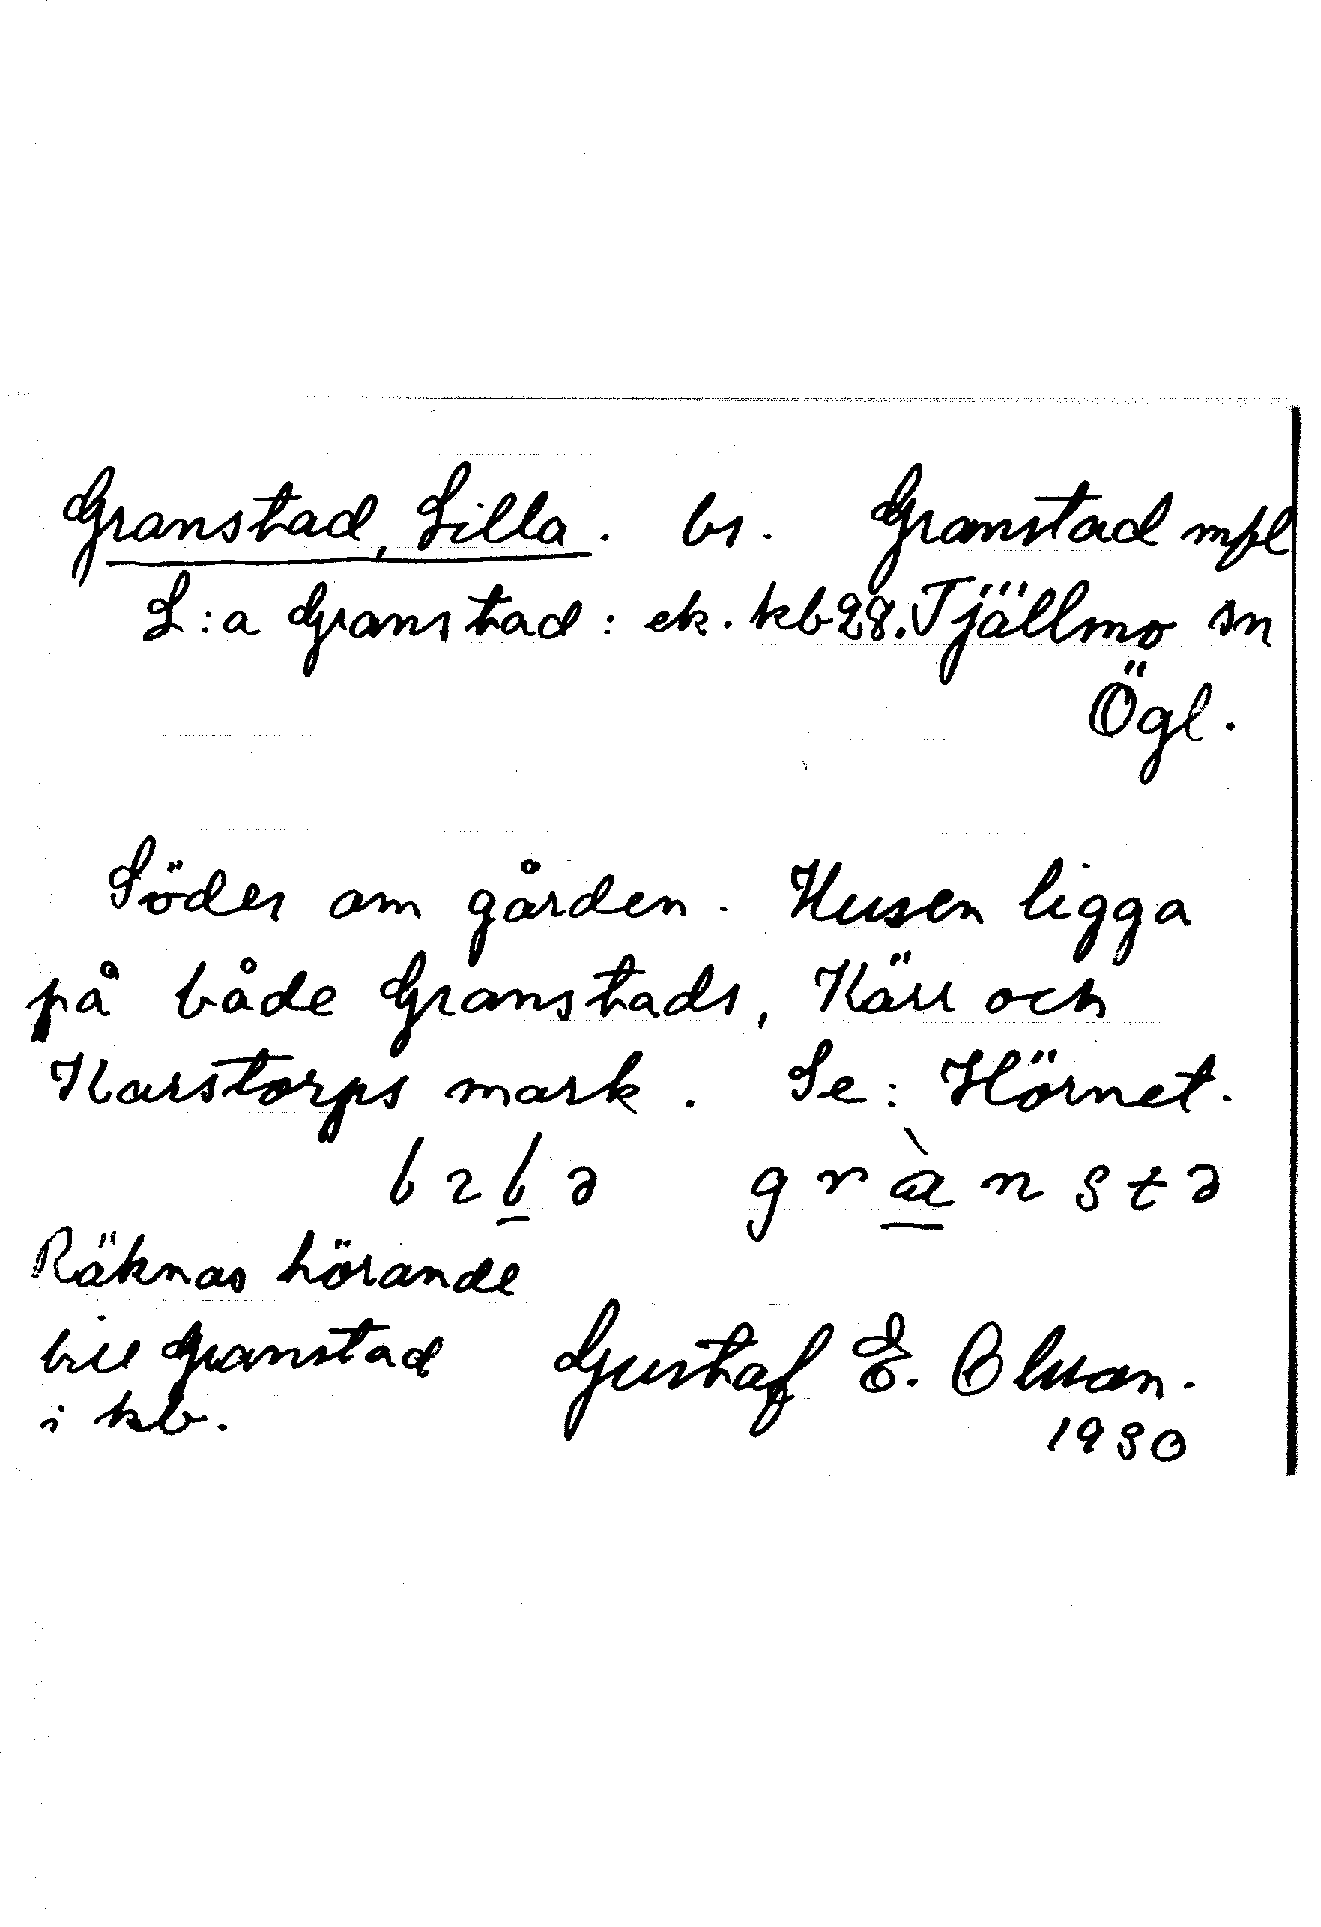 Granstad, Lilla. bs. Granstad mfl
L:a Granstad: ek. kb28. Tjällmo sn
Ögl.
Söder om gården. Husen ligga
på både Granstads, Kärr och
Karstorps mark. Se: Hörnet.
grànstə
Räknas hörande
till Granstad
i kb.
Gustaf E. Olsson.
1930